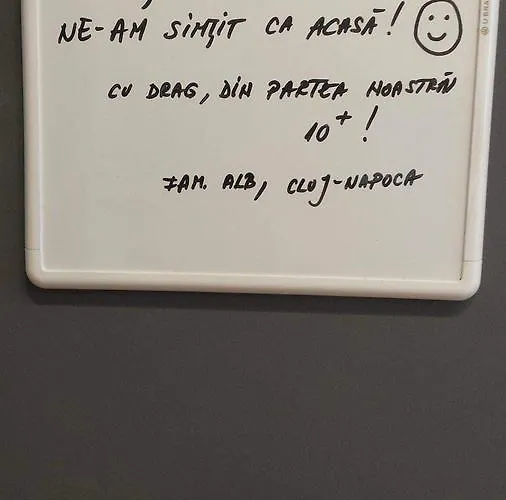 NE-AM SIMȚIT CA ACASĂ!
CU DRAG, DIN PARTEA NOASTRĂ
10+!
FAM. ALB, CLUJ-NAPOCA